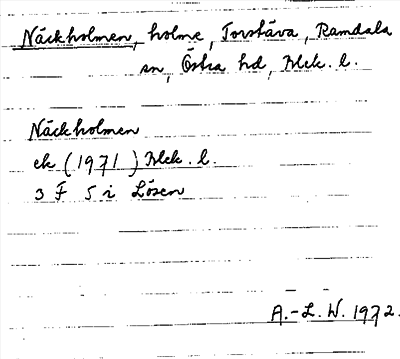 Näckholmen, holme, Torstäva, Ramdala
sn, Östra hd, Blek. l.
Näckholmen
ek (1971) Blek. l.
3 F 5 i Lösen
A.-L. W. 1972.